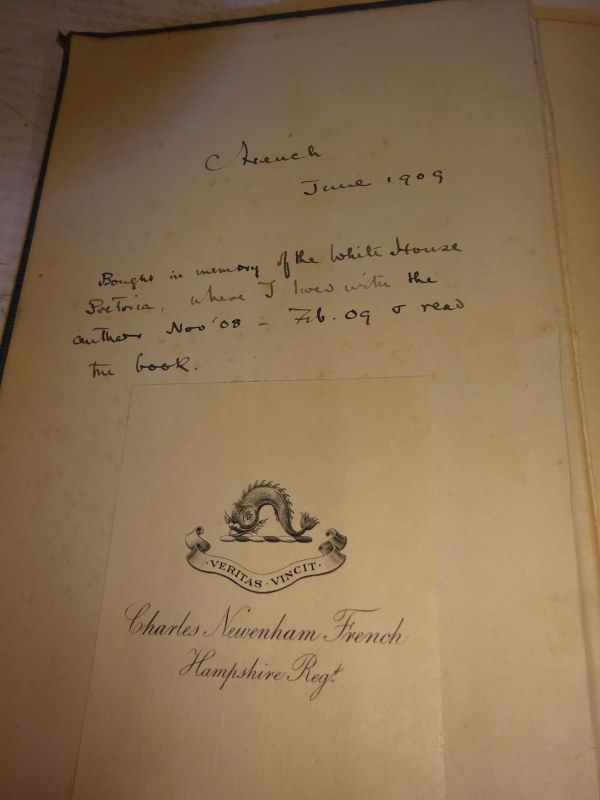 C French
June 1909
Bought in memory of the White House
Pretoria, where I lived with the
author Nov '08 - Feb. 09 & read
the book.
VERITAS · VINCIT
Charles Newenham French
Hampshire Regt.